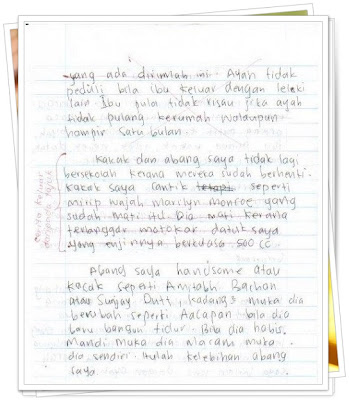 yang ada dirumah ini. Ayah tidak
peduli bila ibu keluar dengan leleki
lain. Ibu pula tidak risau jika ayah
tidak pulang kerumah walaupun
hampir satu bulan.
Kakak dan abang saya tidak lagi
bersekolah kerana mereka sudah berhenti.
Kakak saya cantik tetapi seperti
mirip wajah marilyn monroe yang
sudah mati itu. Dia mati kerana
terlanggar motokar datuk saya
yang enjinnya berkuasa 500 cc
Abang saya handsome atau
kacak seperti Amitabh Bachan
atau Sunjay Dutt, kadang2 muka dia
berubah seperti Aacapan bila dia
baru bangun tidur. Bila dia habis
mandi muka dia macam muka
dia sendiri. Itulah kelebihan abang
saya.